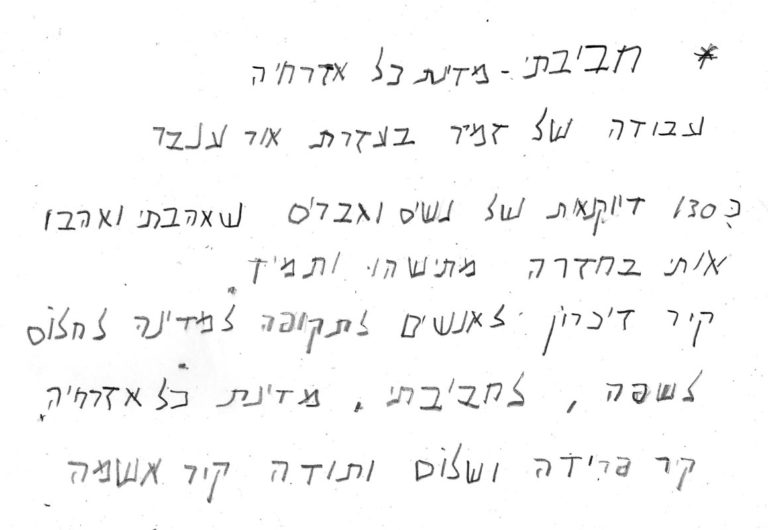 * חביבתי - מדינת כל אזרחיה
עבודה של זמיר בעזרת אור ענבר
כ 130 דיוקנאות של נשים וגברים שאהבתי ואהבו
אותי בחזרה מתישהו ותמיד
קיר זיכרון לאנשים לתקופה למדינה לחלום
לשפה, לחביבתי, מדינת כל אזרחיה,
קיר פרידה ושלום ותודה קיר אשמה